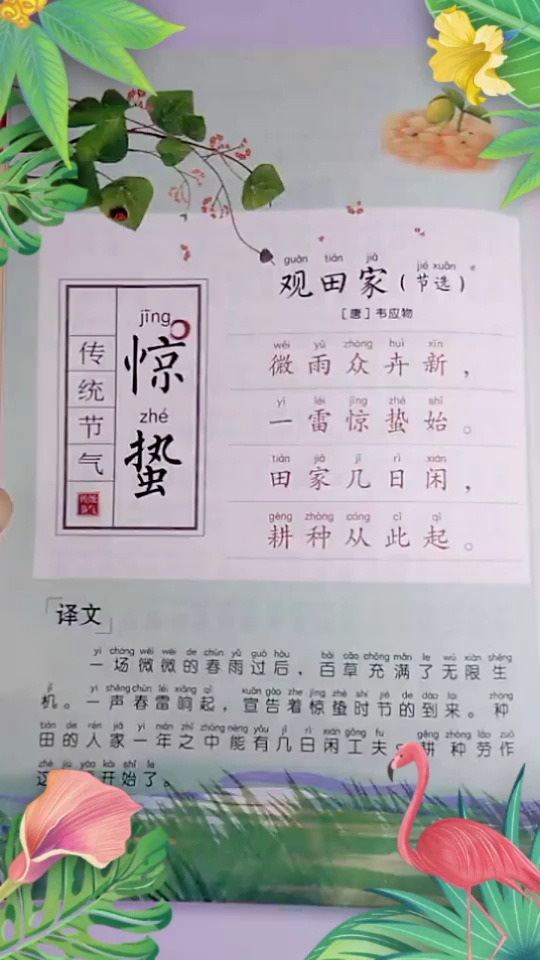 guān tián jiā jié xuǎn
观田家(节选)
[唐]韦应物
jīng
惊
zhé
蛰
传统节气
wēi yǔ zhòng huì xīn
微雨众卉新，
yì léi jīng zhé shǐ
一雷惊蛰始。
tián jiā jǐ rì xián
田家几日闲，
gēng zhòng cóng cǐ qǐ
耕种从此起。
译文
yì chǎng wēi wēi de chūn yǔ guò hòu bǎi cǎo chōng mǎn le wú xiàn shēng
一场微微的春雨过后，百草充满了无限生
jī yì shēng chūn léi xiǎng qǐ xuān gào zhe jīng zhé shí jié de dào lái zhòng
机。一声春雷响起，宣告着惊蛰时节的到来。种
tián de rén jiā yì nián zhī zhōng néng yǒu jǐ rì xián gōng fu gēng zhòng láo zuò
田的人家一年之中能有几日闲工夫。耕种劳作
zhè jiù yào kāi shǐ le
这 开始了。